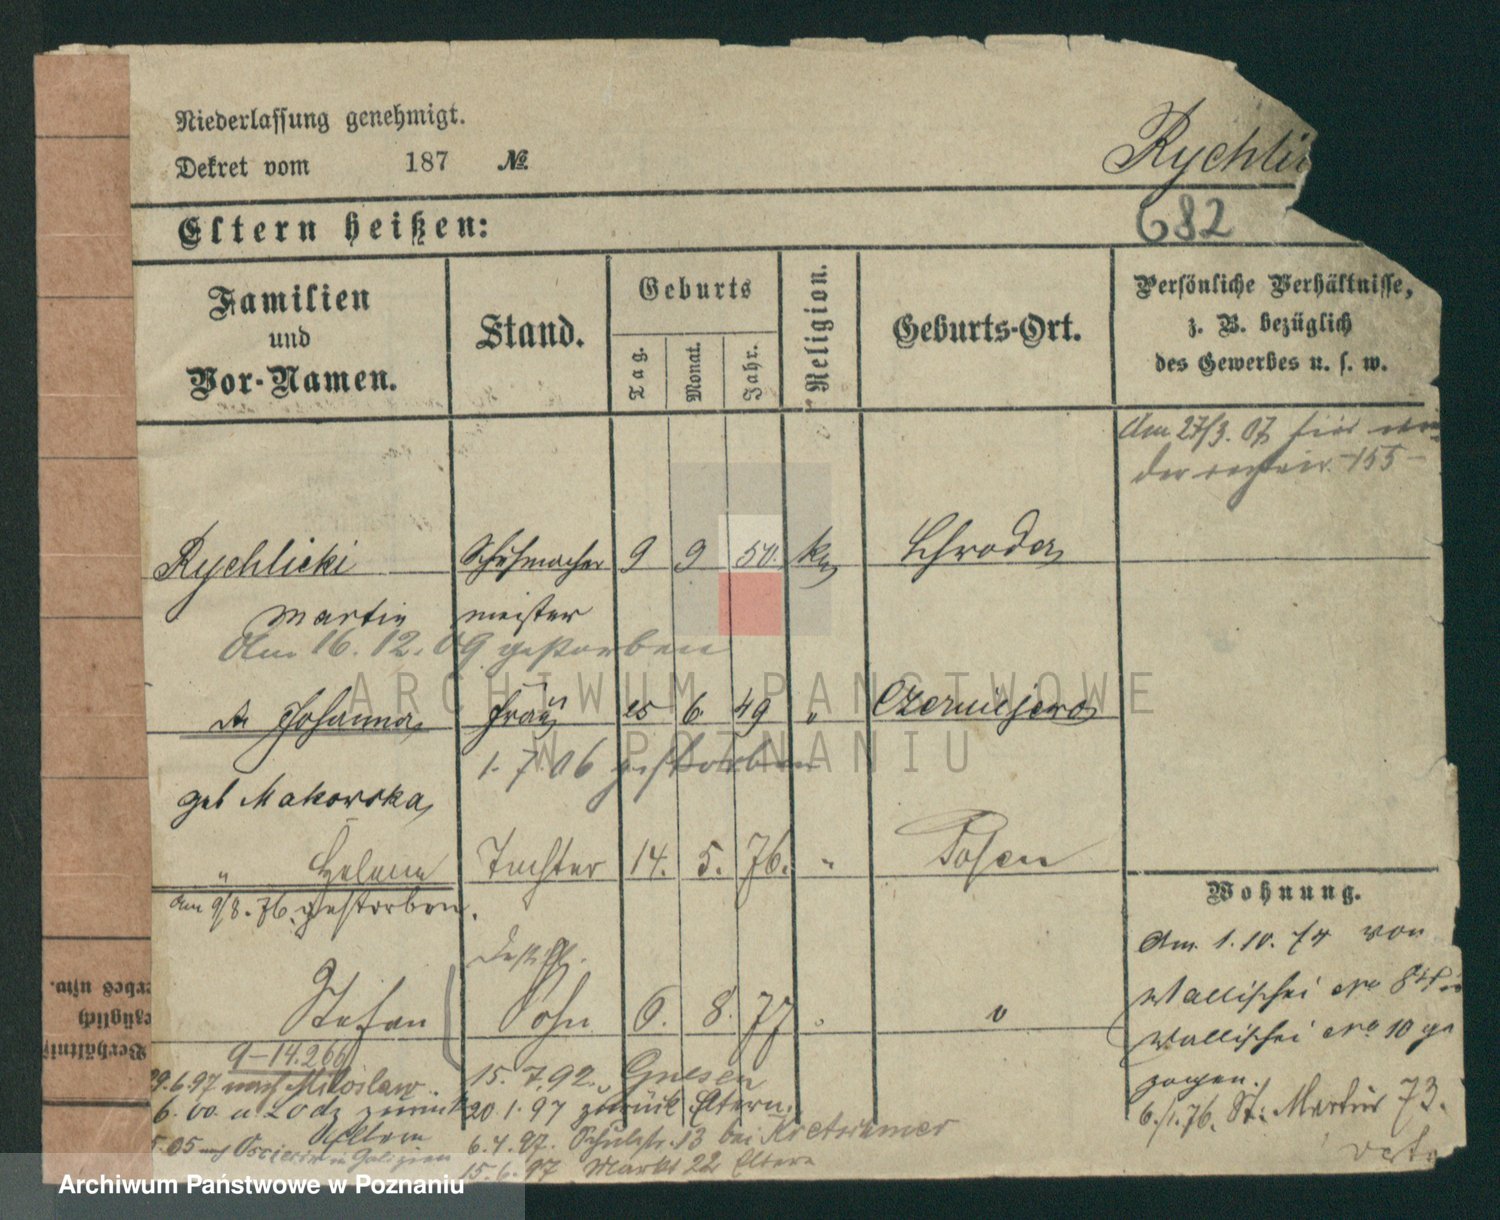 Niederlassung genehmigt.
Dekret vom 187 №
Rychli
682
Eltern heißen:
Familien
und
Vor-Namen.
Stand.
Geburts
Tag.
Monat.
Jahr.
Religion.
Geburts-Ort.
Persönliche Verhältnisse,
z. B. bezüglich
des Gewerbes u. s. w.
Am 27/3. 07
der 155
Rychlicki Schuhmacher 9 9 50. Schroda
Martin meister
Am 16. 12. 09 gestorben
Johanna Frau 25 6. 49 " Czerniejewo
1. 7. 06 gestorben
geb Makowska
" Helena Tochter 14. 5. 76. " Posen
am 9/8. 76. gestorben.
Stefan Sohn 6. 8. 77 " "
9-14.266
29.6.97 nach Miloslaw
6. 00. a. Lodz zurück
Eltern
5.05 Galizien
15. 7. 92. Gnesen
20. 1. 97 zurück Eltern.
6. 4. 97. Schulstr. 13 bei Kretschmer
15. 6. 97 Markt 22 Eltern
Wohnung.
Am 1. 10. 74 von
Wallischei No 84
Wallischei No 10 ge
zogen.
6/1. 76. St. Martin 73.
erbes usw.
ezüglich
Verhältni
ARCHIWUM PAŃSTWOWE
W POZNANIU
Archiwum Państwowe w Poznaniu